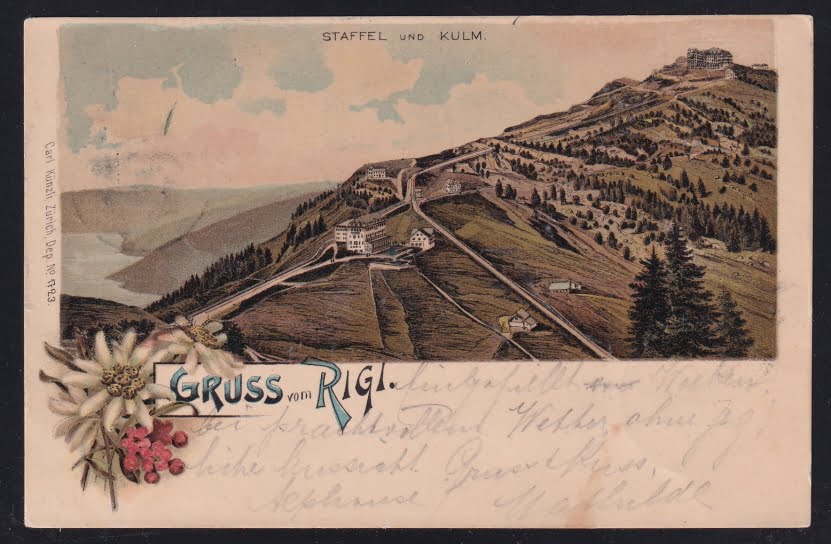 STAFFEL UND KULM.
Carl Künzli, Zürich, Dep. No 723.
GRUSS vom RIGI.
bei prachtvollem Wetter ohne jeg
liche Aussicht Gruss & Kuss.
Alphonse / Mathilde